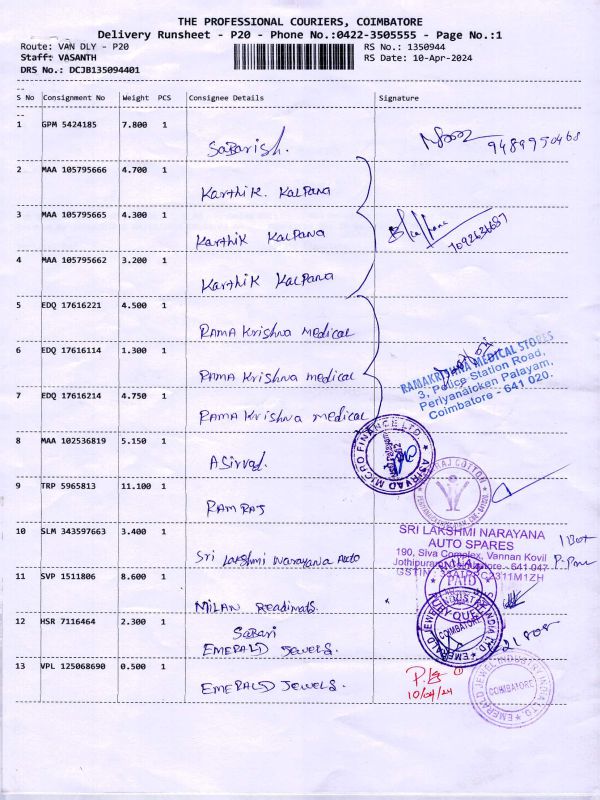 THE PROFESSIONAL COURIERS, COIMBATORE
Delivery Runsheet - P20 - Phone No.:0422-3505555 - Page No.:1
Route: VAN DLY - P20
RS No.: 1350944
Staff: VASANTH
RS Date: 10-Apr-2024
DRS No.: DCJB135094401
S No Consignment No Weight PCS Consignee Details Signature
1 GPM 5424185 7.800 1 Sabarish. 9489950468
2 MAA 105795666 4.700 1 Karthik. Kalpana
3 MAA 105795665 4.300 1 Karthik Kalpana
4 MAA 105795662 3.200 1 Karthik Kalpana
5 EDQ 17616221 4.500 1 RAMA Krishna medical
6 EDQ 17616114 1.300 1 RAMA Krishna medical
7 EDQ 17616214 4.750 1 RAMA Krishna medical
RAMAKRISHNA MEDICAL STORES
3, Police Station Road,
Periyanaicken Palayam,
Coimbatore - 641 020.
8 MAA 102536819 5.150 1 Asirvad.
ASIRVAD MICRO FINANCE LTD.
9 TRP 5965813 11.100 1 RAMRAJ
RAMRAJ COTTON
10 SLM 343597663 3.400 1 Sri Lakshmi Narayana Auto
SRI LAKSHMI NARAYANA
AUTO SPARES
190, Siva Complex, Vannan Kovil
1 Box
11 SVP 1511806 8.600 1 MILAN Readimats.
PAID
12 HSR 7116464 2.300 1 Sabari
EMERALD Jewels.
COIMBATORE
13 VPL 125068690 0.500 1 EMERALD Jewels.
10/04/24
EMERALD JEWEL INDUSTRY INDIA LTD.
COIMBATORE